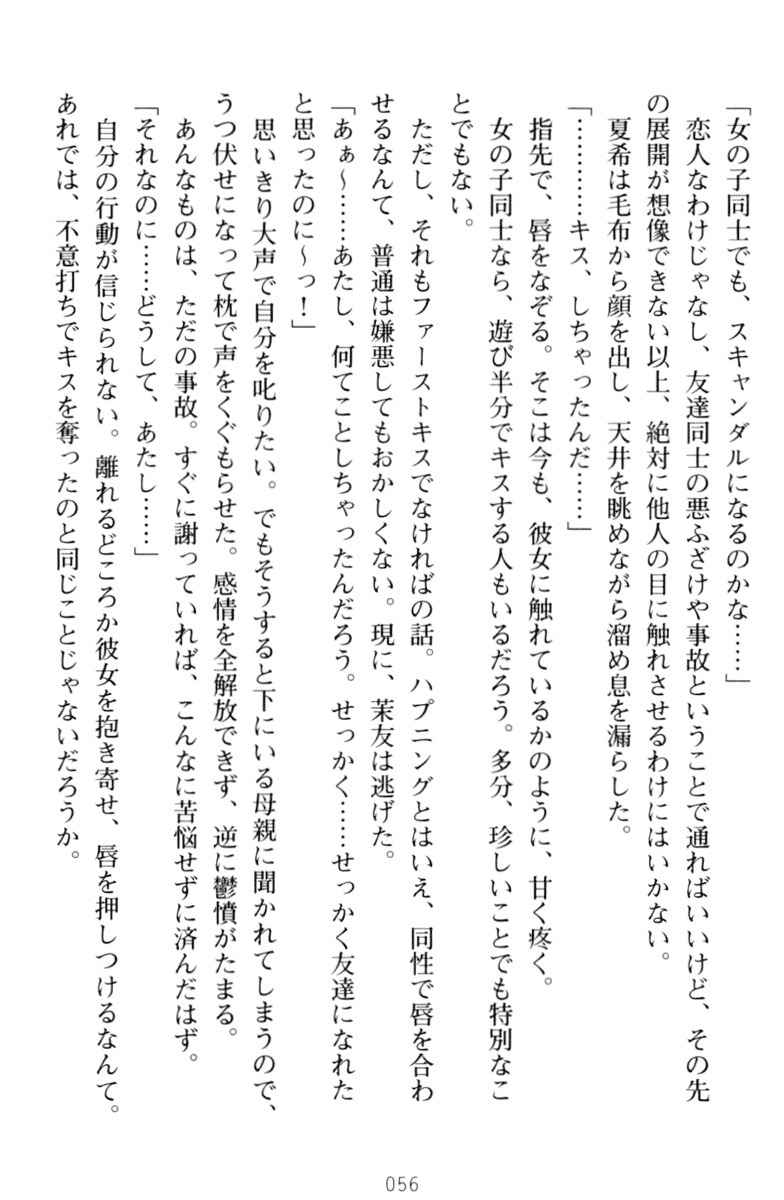 「女の子同士でも、スキャンダルになるのかな……」
　恋人なわけじゃなし、友達同士の悪ふざけや事故ということで通ればいいけど、その先
の展開が想像できない以上、絶対に他人の目に触れさせるわけにはいかない。
　夏希は毛布から顔を出し、天井を眺めながら溜め息を漏らした。
「…………キス、しちゃったんだ……」
　指先で、唇をなぞる。そこは今も、彼女に触れているかのように、甘く疼く。
　女の子同士なら、遊び半分でキスする人もいるだろう。多分、珍しいことでも特別なこ
とでもない。
　ただし、それもファーストキスでなければの話。ハプニングとはいえ、同性で唇を合わ
せるなんて、普通は嫌悪してもおかしくない。現に、茉友は逃げた。
「あぁ～……あたし、何てことしちゃったんだろう。せっかく……せっかく友達になれた
と思ったのに～っ！」
　思いきり大声で自分を叱りたい。でもそうすると下にいる母親に聞かれてしまうので、
うつ伏せになって枕で声をくぐもらせた。感情を全解放できず、逆に鬱憤がたまる。
　あんなものは、ただの事故。すぐに謝っていれば、こんなに苦悩せずに済んだはず。
「それなのに……どうして、あたし……」
　自分の行動が信じられない。離れるどころか彼女を抱き寄せ、唇を押しつけるなんて。
あれでは、不意打ちでキスを奪ったのと同じことじゃないだろうか。
056